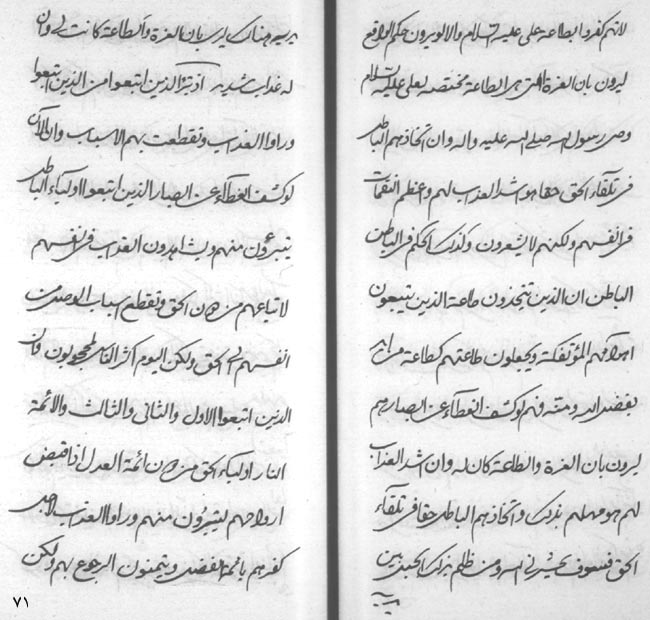 لانهم كفروا بطاعة علي عليه السلام والا ليرون حكم الواقع
ليرون بان العزة التي هي الطاعة مختصة لعلي عليه السلام
وصي رسول الله صلى الله عليه واله وان اتخاذهم الباطل
في تلقاء الحق حقا هو اشد العذاب لهم واعظم النقمات
في انفسهم ولكنهم لا يشعرون وكذلك الحكم في الباطن
الباطن ان الذين يتخذون طاعة الذين يتبعون
اهواءهم المؤتفكة ويجعلون طاعتهم كطاعة من
بفضل الله ومنته فهم لو كشف الغطاء عن ابصارهم
ليرون بان العزة والطاعة كان له وان اشد العذاب
لهم هو مهلهم بذلك واتخاذهم الباطل حقا في تلقاء
الحق فسوف يحشرني الله ومن ظلم بذلك الحق بين
يديه هنالك يرى بان العزة والطاعة كانت لي وان
له عذاب شديد اذ تبرأ الذين اتبعوا من الذين اتبعوا
وراوا العذاب وتقطعت بهم الاسباب وان الآن
لو كشف الغطاء عن ابصار الذين اتبعوا اولياء الباطل
يتبرءون منهم ويشاهدون العذاب في انفسهم
لاتباعهم من دون الحق وتقطع اسباب الوصل من
انفسهم الى الحق ولكن اليوم اكثر الناس لمحجوبون فان
الذين اتبعوا الاول والثاني والثالث والائمة
النار اولياء بحق من دون ائمة العدل اذا قبض
ارواحهم يتبرءون منهم وراوا العذاب لاجل
كفرهم بائمة الفضل ويتمنون الرجوع بهم ولكن
٧١